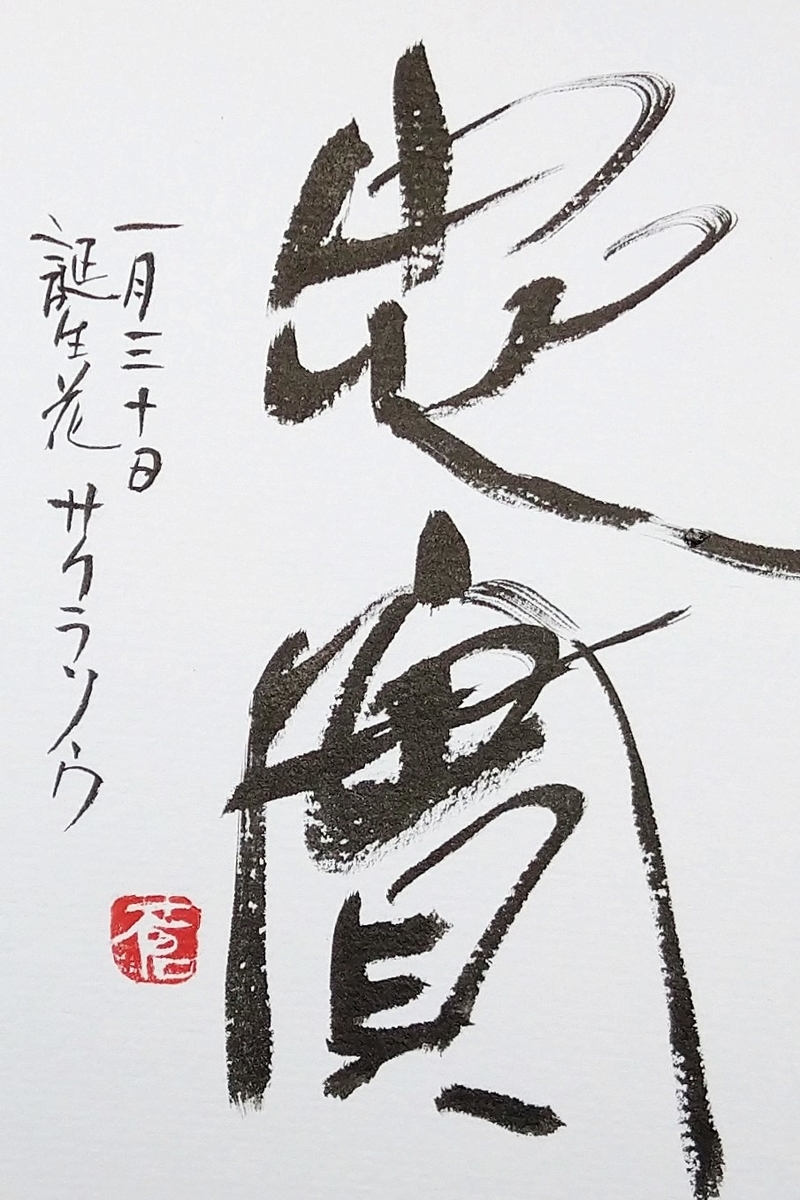 忠實
一月三十日
誕生花 サクラソウ